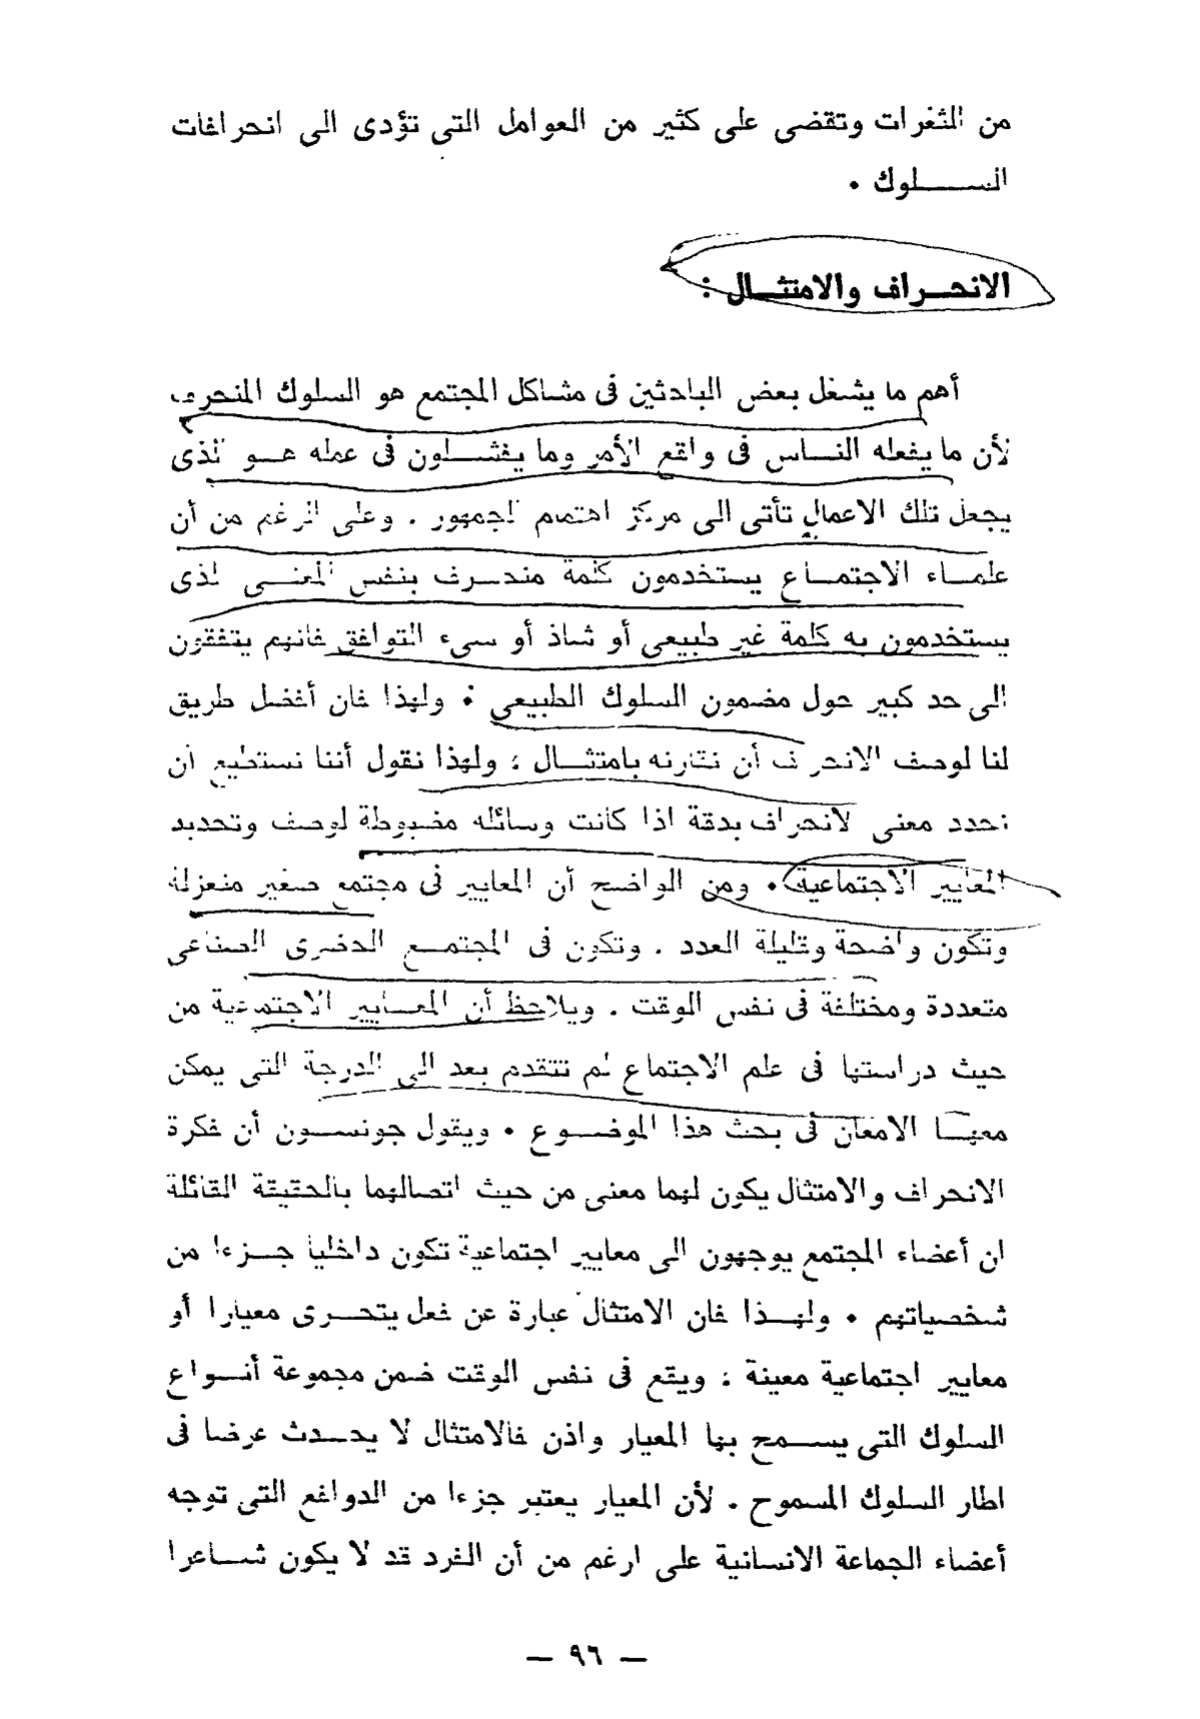 من الثغرات وتقضى على كثير من العوامل التى تؤدى الى انحرافات
السلوك •
الانحراف والامتثال :
أهم ما يشغل بعض الباحثين فى مشاكل المجتمع هو السلوك المنحرف
لأن ما يفعله الناس فى واقع الأمر وما يفشلون فى عمله هو الذى
يجعل تلك الاعمال تأتى الى مركز اهتمام الجمهور . وعلى الرغم من أن
علماء الاجتماع يستخدمون كلمة منحرف بنفس المعنى الذى
يستخدمون به كلمة غير طبيعى أو شاذ أو سىء التوافق فانهم يتفقون
الى حد كبير حول مضمون السلوك الطبيعى • ولهذا فان أفضل طريق
لنا لوصف الانحراف أن نقارنه بامتثال ؛ ولهذا نقول أننا نستطيع أن
نحدد معنى لانحراف بدقة اذا كانت وسائله مضبوطة لوصف وتحديد
المعايير الاجتماعية • ومن الواضح أن المعايير فى مجتمع صغير منعزلة
وتكون واضحة وقليلة العدد . وتكون فى المجتمع الحضرى الصناعى
متعددة ومختلفة فى نفس الوقت . ويلاحظ أن المعايير الاجتماعية من
حيث دراستها فى علم الاجتماع لم تتقدم بعد الى الدرجة التى يمكن
معها الامعان فى بحث هذا الموضوع • ويقول جونسون أن فكرة
الانحراف والامتثال يكون لهما معنى من حيث اتصالهما بالحقيقة القائلة
ان أعضاء المجتمع يوجهون الى معايير اجتماعية تكون داخليا جزءا من
شخصياتهم • ولهذا فان الامتثال عبارة عن فعل يتحرى معيارا أو
معايير اجتماعية معينة ؛ ويقع فى نفس الوقت ضمن مجموعة أنواع
السلوك التى يسمح بها المعيار واذن فالامتثال لا يحدث عرضا فى
اطار السلوك المسموح . لأن المعيار يعتبر جزءا من الدوافع التى توجه
أعضاء الجماعة الانسانية على ارغم من أن الفرد قد لا يكون شاعرا
— ٩٦ —